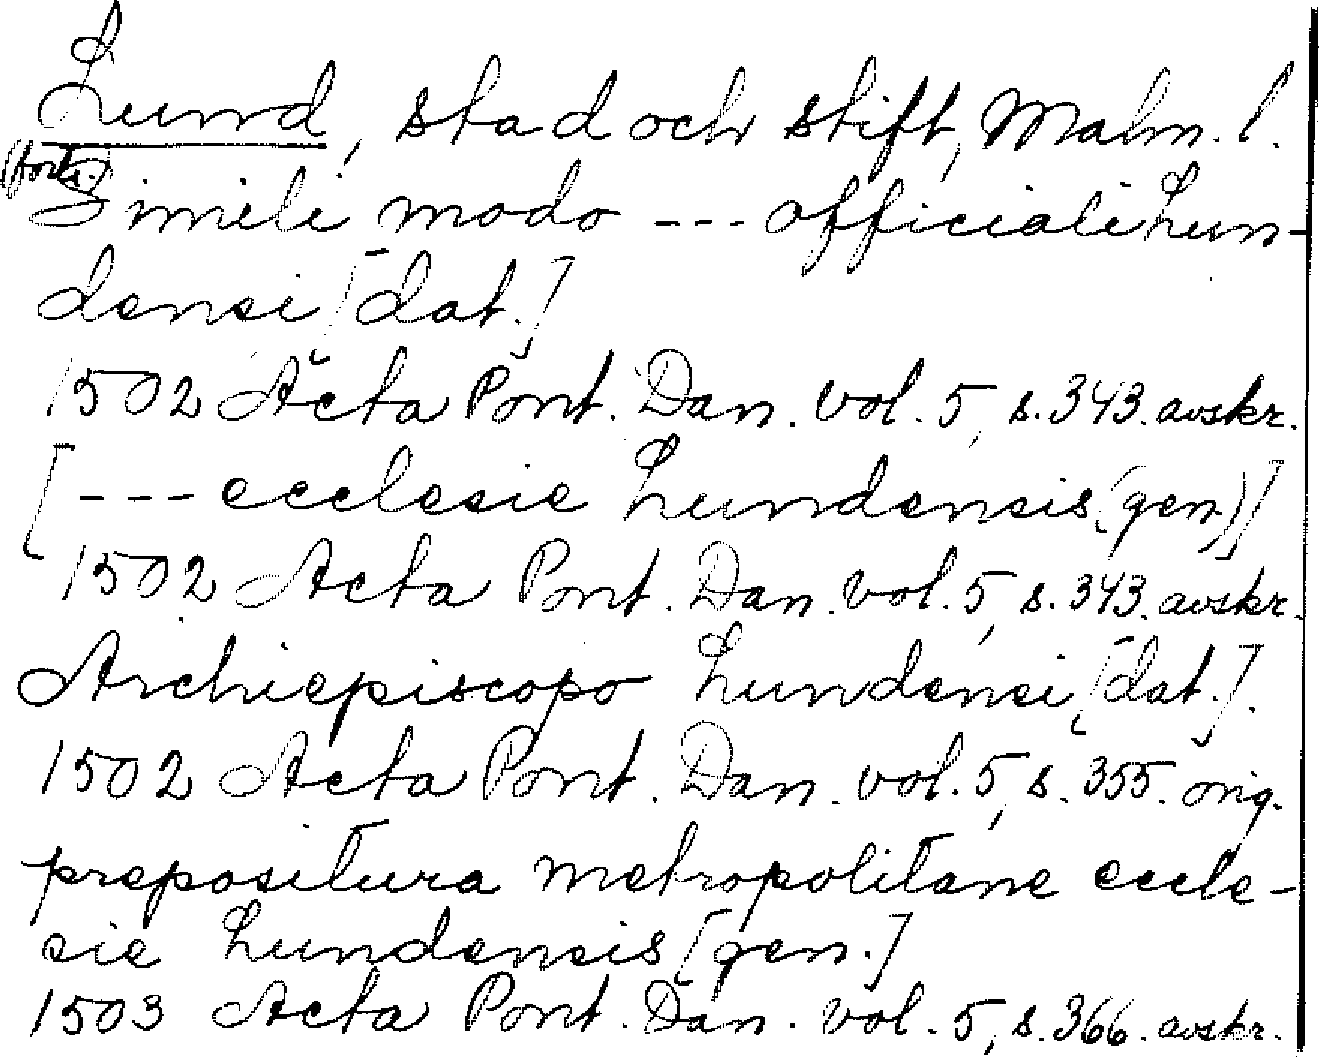 Lund, stad och stift, Malm. l.
(forts.)
Simili modo --- officiali Lun-
densi [dat.]
1502 Acta Pont. Dan. vol. 5, s. 343. avskr.
[--- ecclesie Lundensis (gen.)]
1502 Acta Pont. Dan. vol. 5, s. 343. avskr.
Archiepiscopo Lundensi [dat.].
1502 Acta Pont. Dan. vol. 5, s. 355. orig.
prepositura metropolitane eccle-
sie Lundensis [gen.]
1503 Acta Pont. Dan. vol. 5, s. 366. avskr.